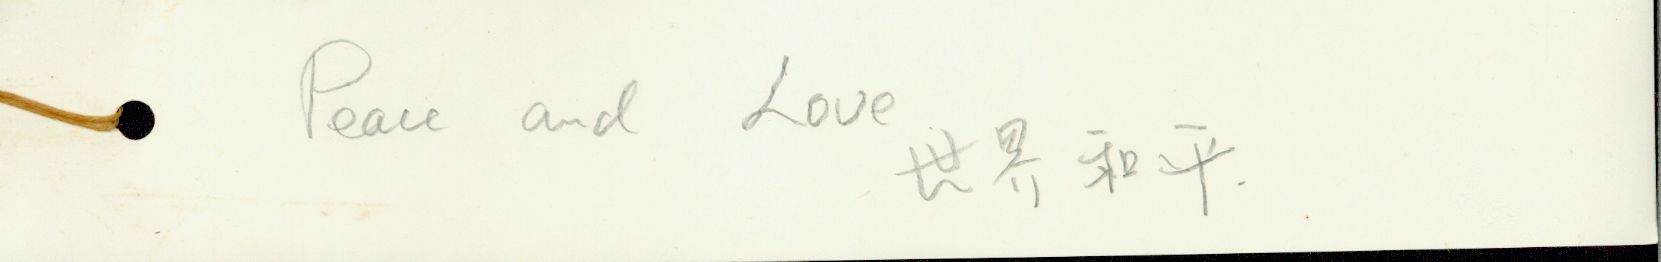 Peace and Love
世界和平.